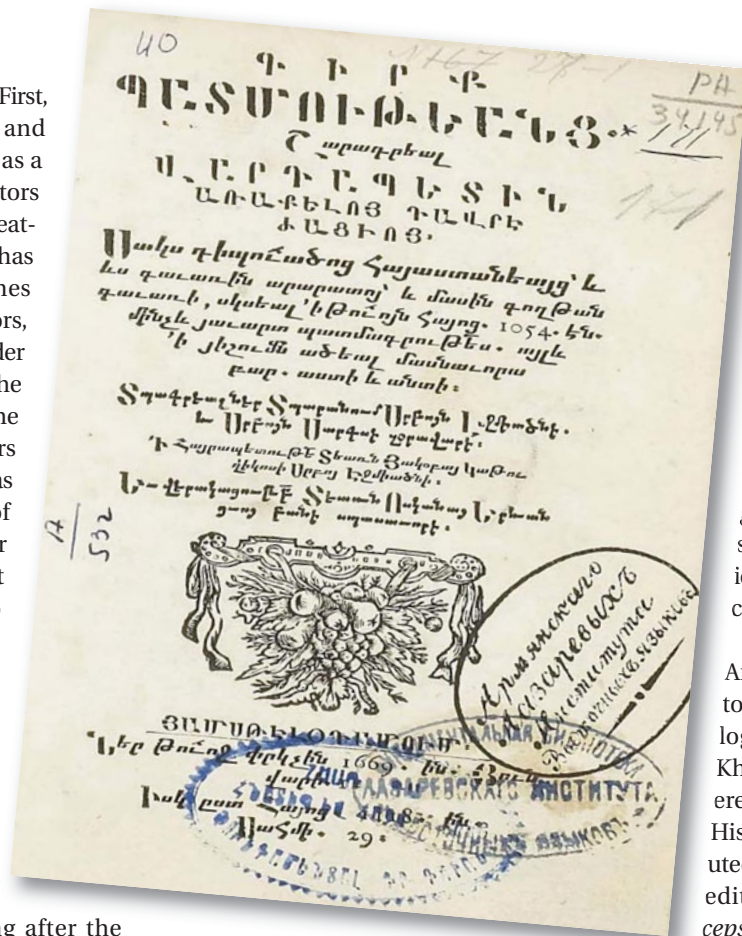 First,
and
as a
tors
eat-
has
nes
ors,
der
he
ne
rs
as
of
40
РА
34145
171
171
ԳԻՐՔ
ՊԱՏՄՈՒԹԵԱՆՑ.
Շարադրեալ
ՎԱՐԴԱՊԵՏԻՆ
ԱՌԱՔԵԼՈՅ ԴԱՎՐԷ
ԺԱՑՒՈՅ.
Սակս դիպուածոց Հայաստանեայցս՝ և
ևս գաւառին արարատոյ՝ և մասին գողթան
գաւառի, սկսեալ ՚ի թուոյն Հայոց. 1054. էն.
մինչև յաւարտ պատմագրութես. այլև
՚ի յիշումն ածեալ մասնաւորա
բար. աստի և անտի։
Տպագրեալ ներ Տպարանում Սրբոյն Էջմիածնի.
և Սրբոյն Սարգսի զօրավարի.
Ի Հայրապետութե Տեառն Յակօբայ Կաթու
ղիկոսի Սրբոյ Էջմիածնի.
Եւ վերակացութբ Տեառն Ոսկանայ Երևան
ցւոյ բանի սպասաւորի.
A
532
Армянскаго
Лазаревыхъ
Института
Восточныхъ языковъ
ՅԱՄՍԹԵԼՕԴԱՄՈՒՄ.
Ներ Թուոջ փրկչին 1669
Իսկ ըստ Հայոց
Մահմի. 29.
ЛАЗАРЕВСКАГО ИНСТИТУТА
ВОСТОЧНЫХЪ ЯЗЫКОВЪ
ng after the
to
log
Kh
ere
His
uted
edit
ceps